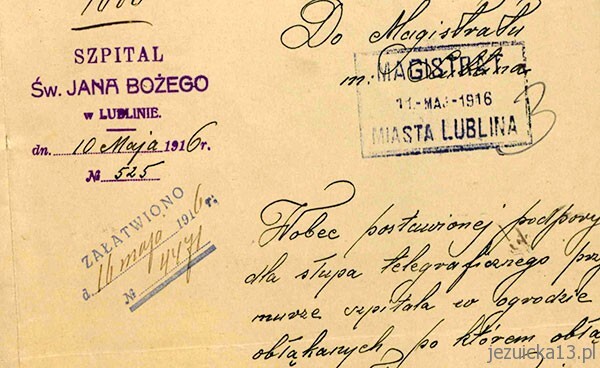 SZPITAL
Św. JANA BOŻEGO
w LUBLINIE.
dn. 10 Maja 1916 r.
№ 525
ZAŁATWIONO
d. 16 majo 1916 r.
№ 4471
Do Magistratu
m. Lublina
MAGISTRAT
11-MAJ-1916
MIASTA LUBLINA
3
Wobec postawionej podpory
dla słupa telegraficznego przy
murze szpitala w ogrodzie
obłąkanych, po którem obłą
jezuicka13.pl